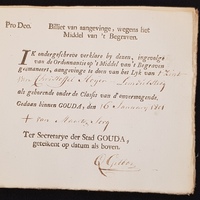 Pro Deo. Billet van aangevinge, wegens het
Middel van 't Begraven.
IK ondergeschreve verklare by dezen, ingevolge
van de Ordonnantie op 't Middel van 't Begraven
geemaneert, aangevinge te doen van het Lyk van
als gehoorende onder de Classis van d'onvermogende.
Gedaan binnen GOUDA, den 16 January 1801
Ter Secretarye der Stad GOUDA,
geteekent op datum als boven.